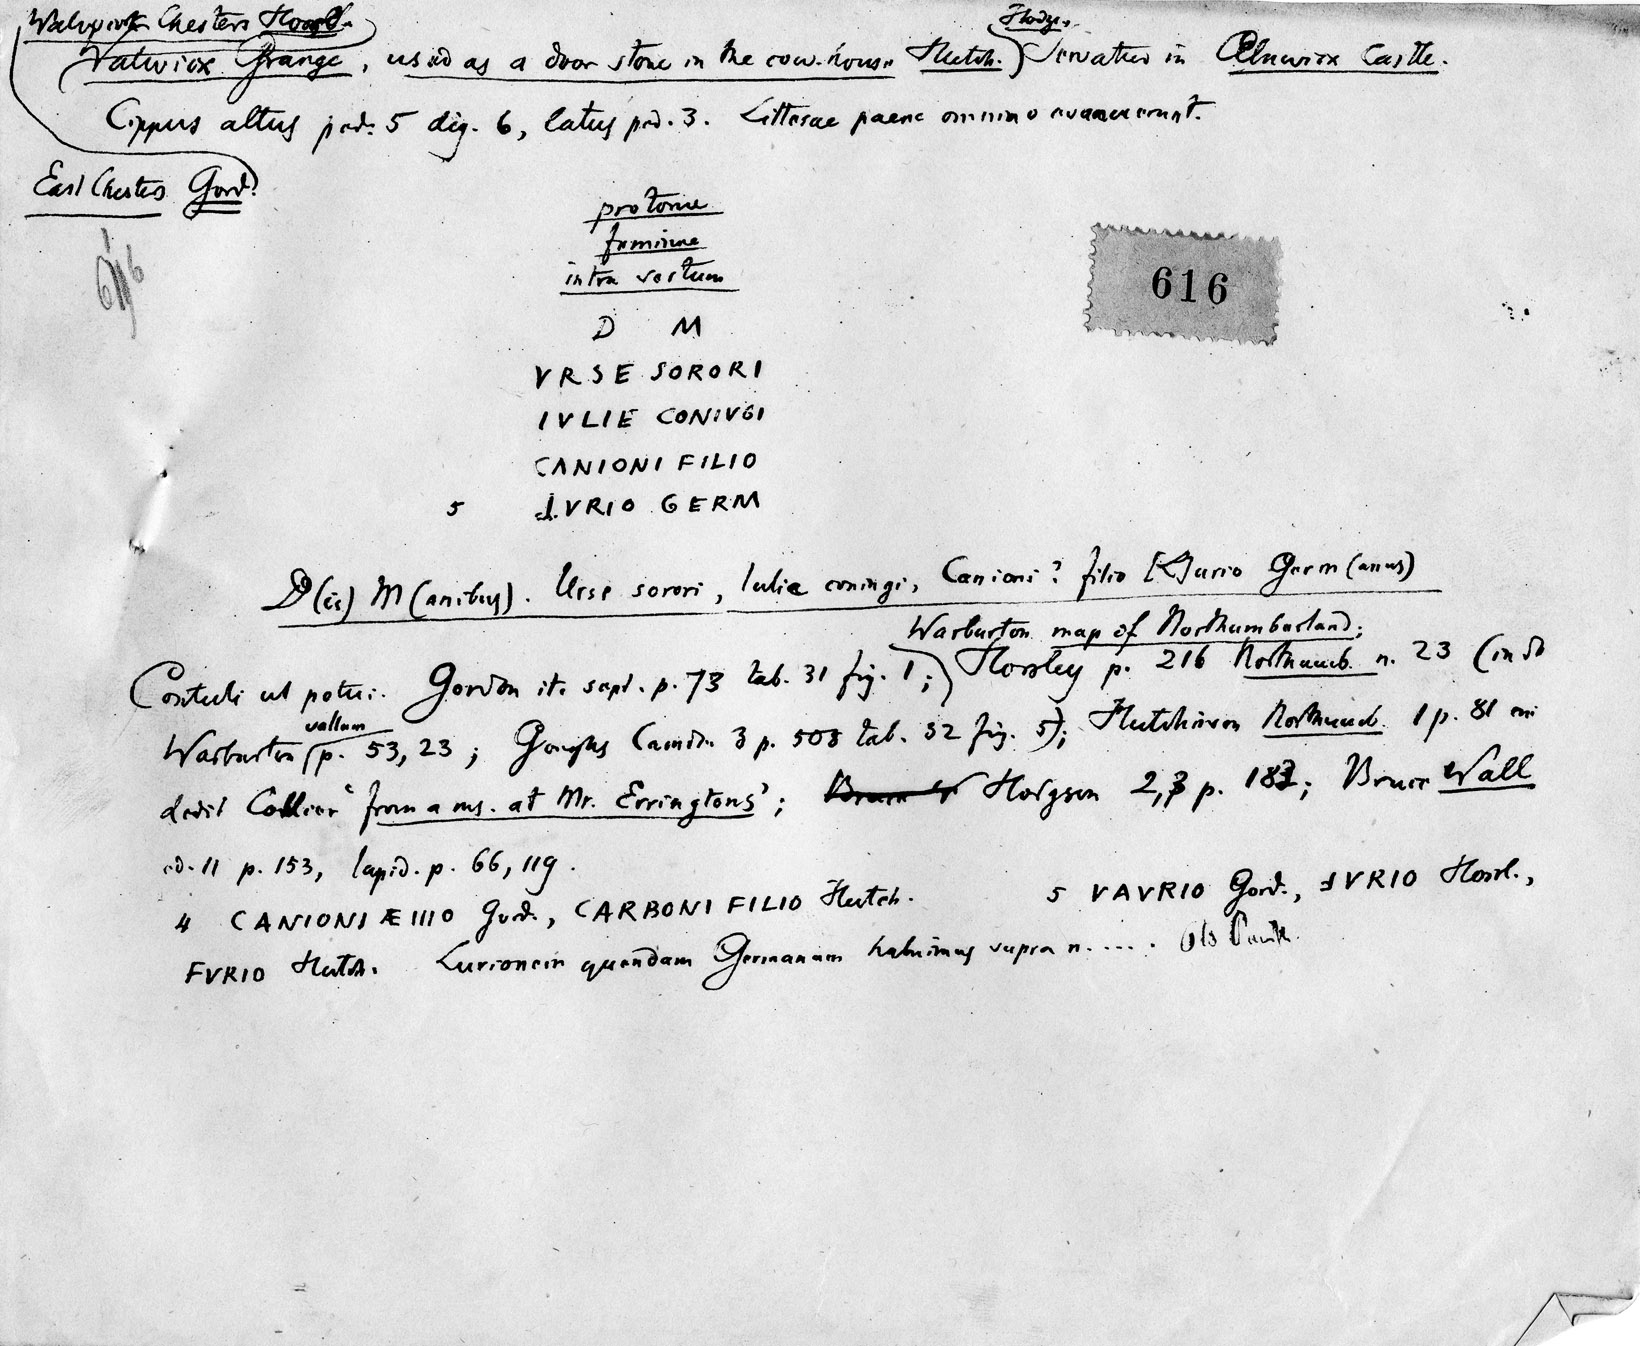 Walwick Chesters Horsl.
Walwick Grange, used as a door stone in the cow-house Hutch. Hodgs. Servatur in Alnwick Castle.
Cippus altus ped. 5 dig. 6, latus ped. 3. Litterae paene omnino evanuerunt.
East Chesters Gord.
616
protome
feminae
intra
616
D M
VRSE SORORI
IVLIE CONIVGI
CANIONI FILIO
5 VRIO GERM
D(is) M(anibus). Urse sorori, Iulie coniugi, Canioni? filio [L]urio Germ(anus)
Warburton map of Northumberland;
Contuli ut potui. Gordon it. sept. p. 73 tab. 31 fig. 1; Horsley p. 216 Northumb. n. 23 (inde
Warburton vallum p. 53, 23; Goughs Camden 3 p. 508 tab. 32 fig. 5); Hutchinson Northumb. 1 p. 81 cui
dedit Collier 'from a ms. at Mr. Erringtons'; Hodgson 2,3 p. 183; Bruce Wall
ed. 11 p. 153, lapid. p. 66, 119.
4 CANIONI ÆIIIO Gord., CARBONI FILIO Hutch. 5 VAVRIO Gord., VRIO Horsl.,
FVRIO Hutch. Lurionem quendam Germanum habuimus supra n. ....